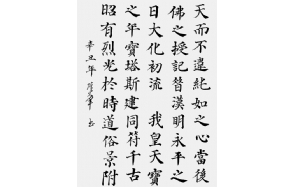 天而不遷純如之心當後
佛之授記昔漢明永平之
日大化初流　我皇天寶
之年寶塔斯建同符千古
昭有烈光於時道俗景附
辛丑年
書